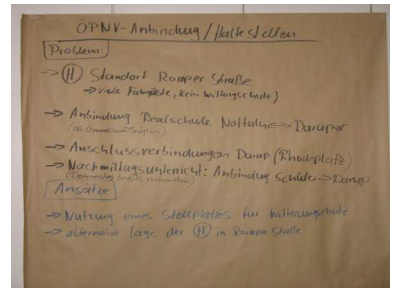 ÖPNV-Anbindung / Haltestellen
Problem:
→ (H) Standort Romper Straße
→ viele Fahrgäste, kein Witterungsschutz)
→ Anbindung Realschule Nottuln ↔ Darup
→ Anschlussverbindungen Darup (Rhodeplatz)
→ Nachmittagsunterricht: Anbindung Schule → Darup
(Donnerstag bereits vorhanden)
Ansätze
→ Nutzung eines Stellplatzes für Witterungsschutz
→ alternative Lage der (H) in Romper Straße